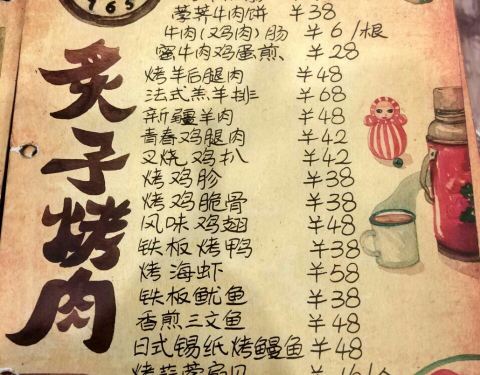 1765
炙子烤肉
荸荠牛肉饼 ¥38
牛肉(鸡肉)肠 ¥6/根
蜜牛肉鸡蛋煎 ¥28
烤羊后腿肉 ¥48
法式羔羊排 ¥68
新疆羊肉 ¥48
青春鸡腿肉 ¥42
叉烧鸡扒 ¥42
烤鸡胗 ¥38
烤鸡脆骨 ¥38
风味鸡翅 ¥48
铁板烤鸭 ¥38
烤海虾 ¥58
铁板鱿鱼 ¥38
香煎三文鱼 ¥48
日式锡纸烤鳗鱼 ¥48
烤蒜蓉扇贝